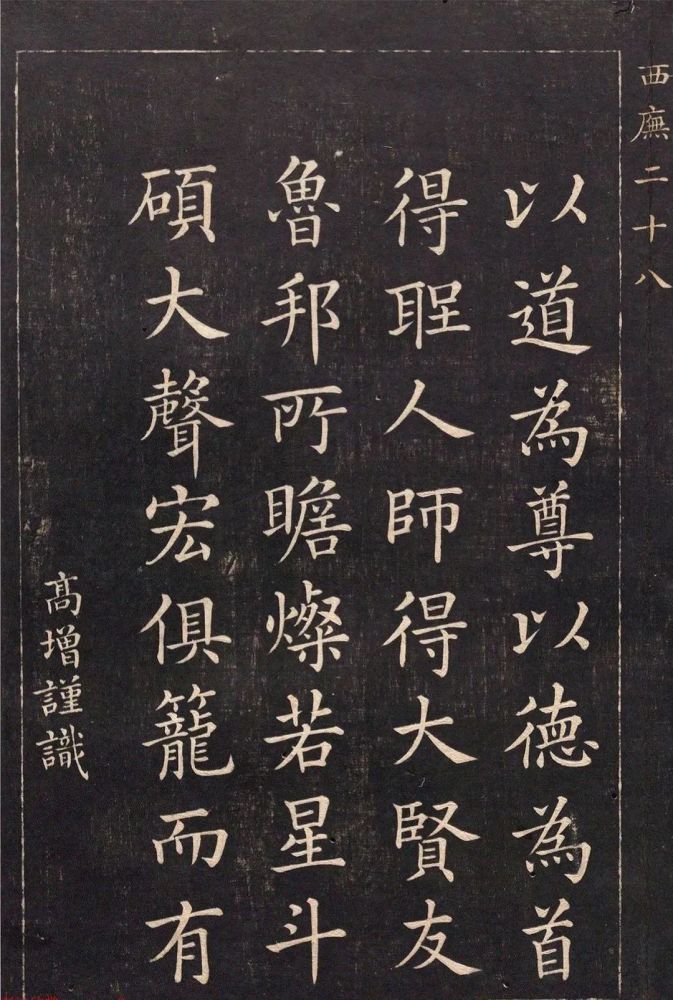 西廡二十八
以道為尊以德為首
得聖人師得大賢友
魯邦所瞻燦若星斗
碩大聲宏俱籠而有
高增謹識